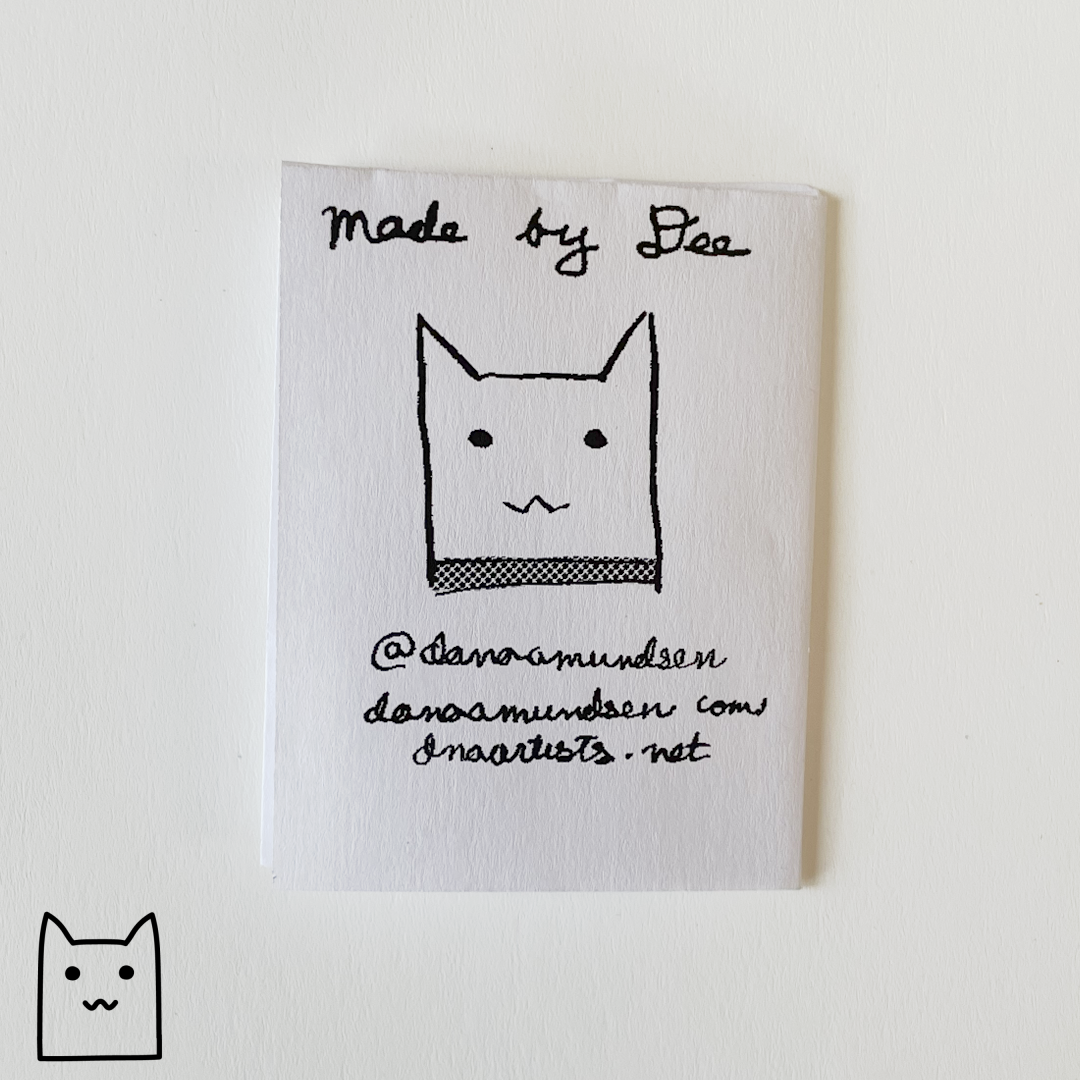 made by Dee
@danaamundsen
danaamundsen com
dnaartists.net